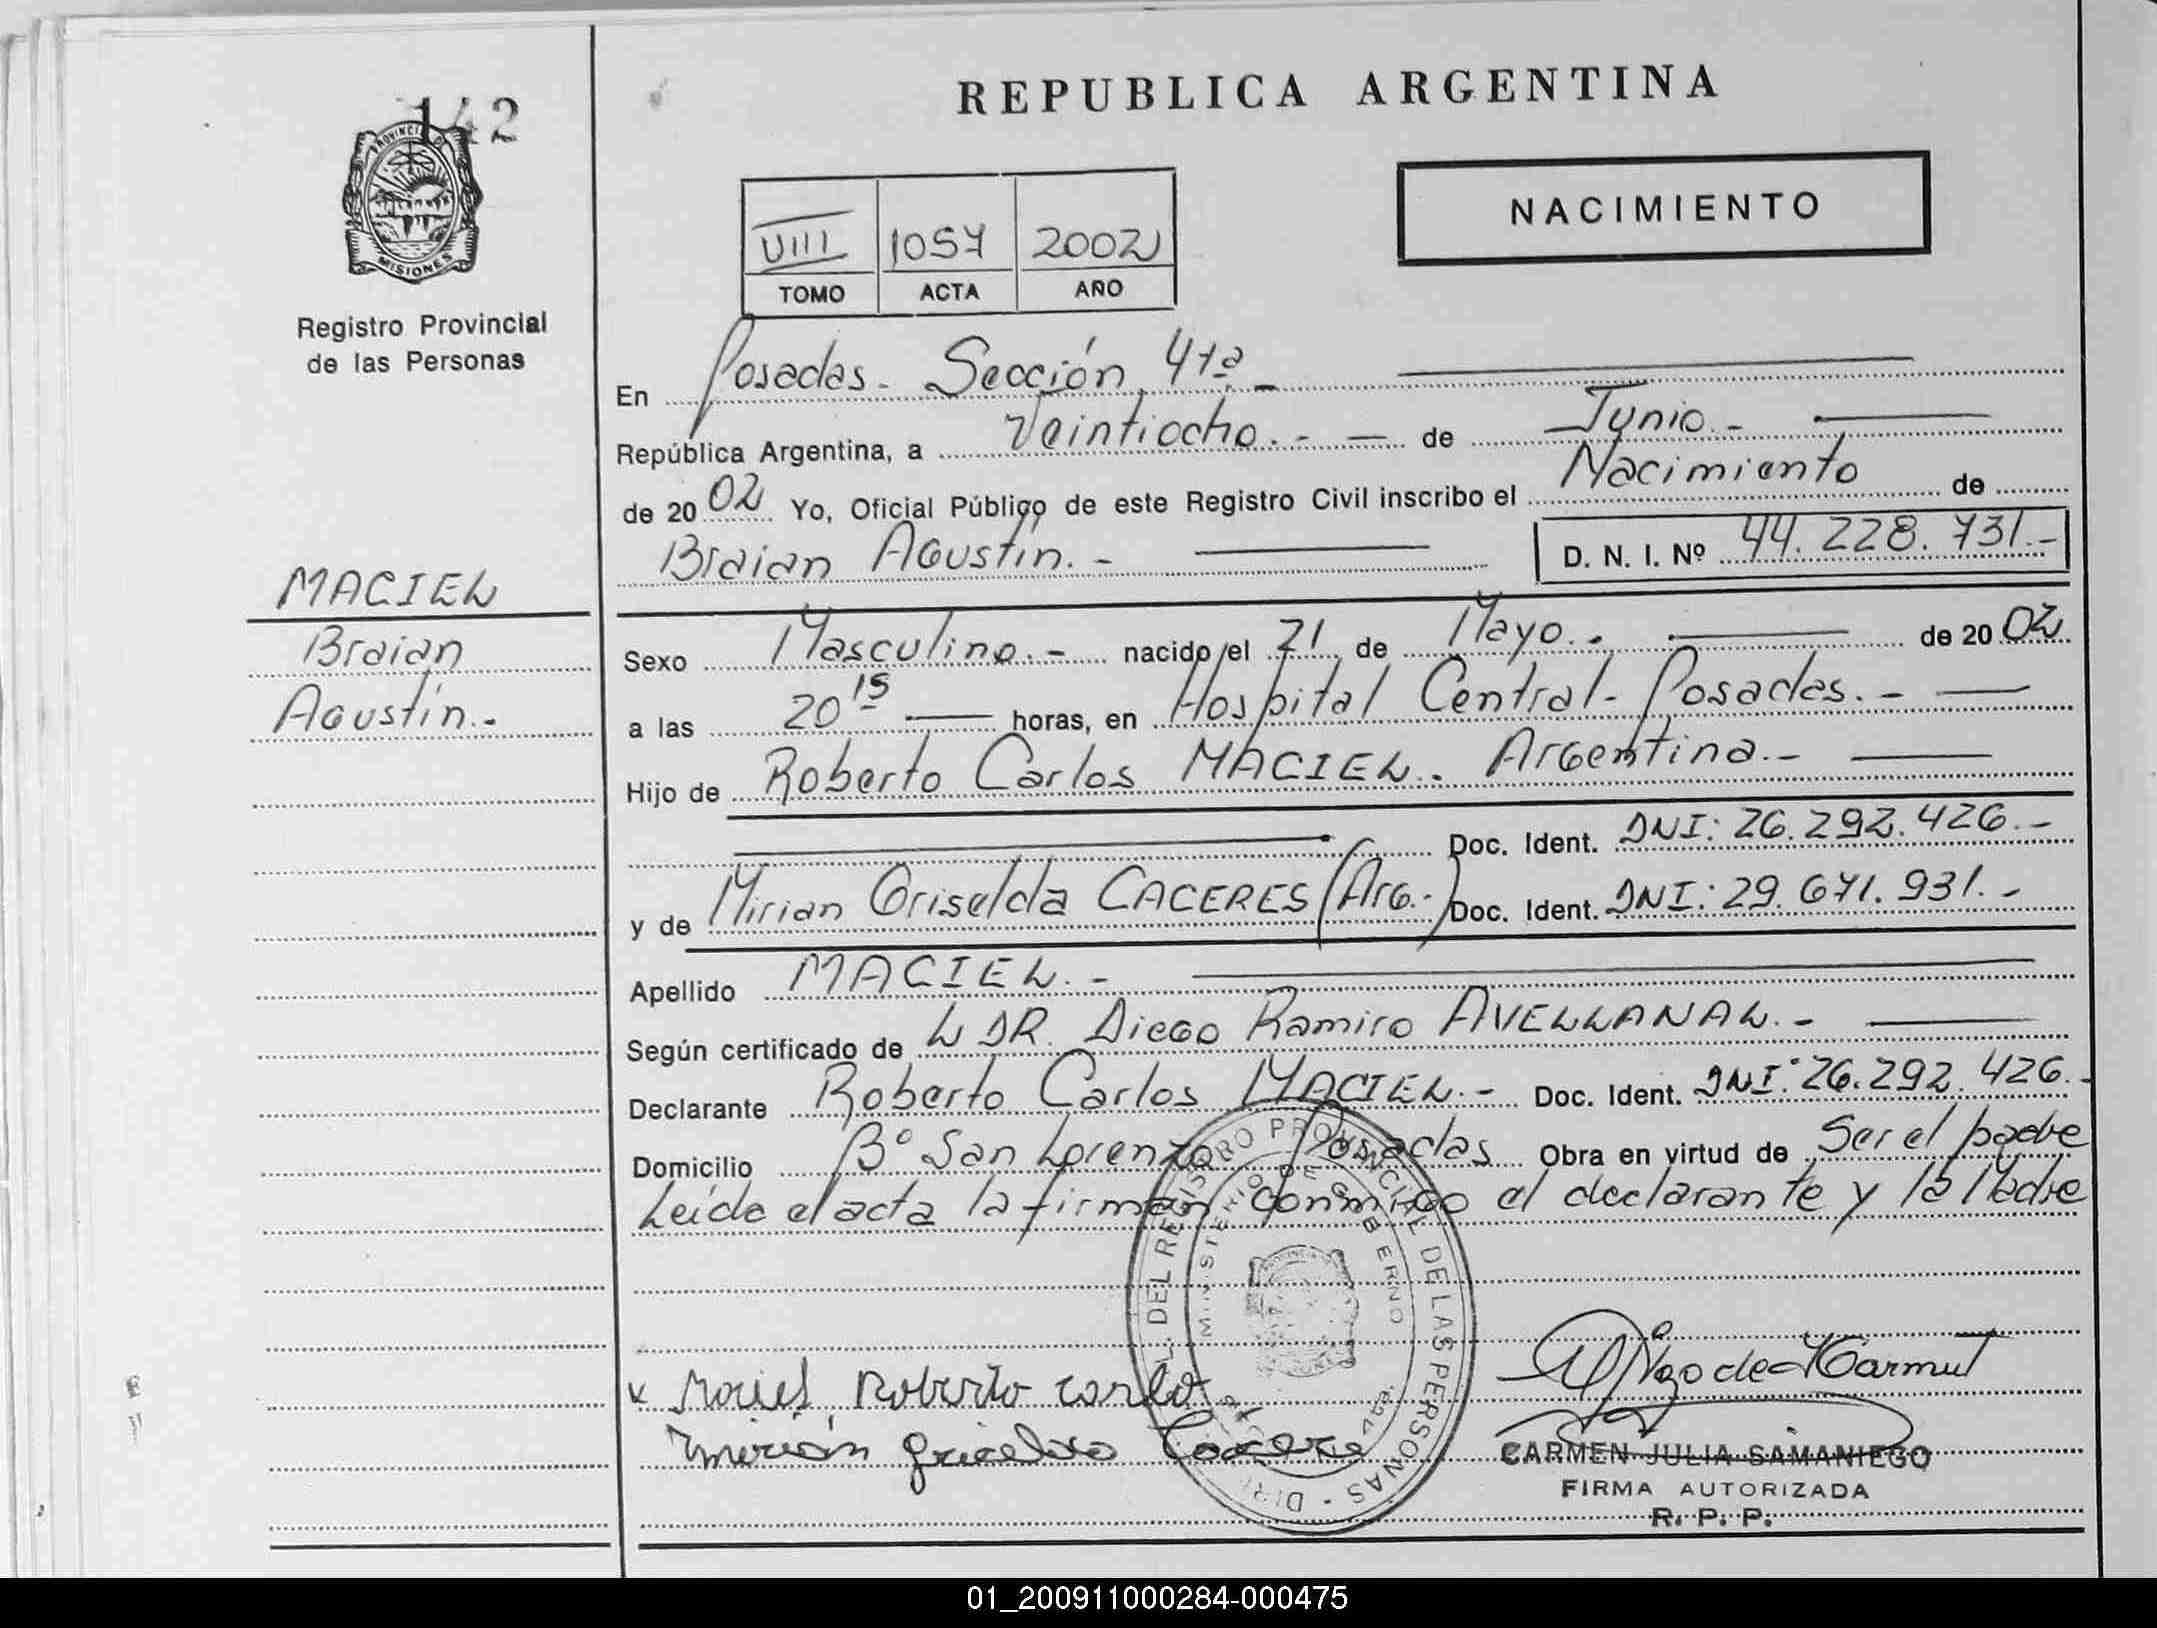 142
PROVINCIA DE
MISIONES
Registro Provincial
de las Personas
MACIEL
Braian
Agustín.-
REPUBLICA ARGENTINA
NACIMIENTO
VIII 1057 2002
TOMO ACTA AÑO
En Posadas. Sección 4ta
República Argentina, a Veintiocho.- de Junio.-
de 2002 Yo, Oficial Público de este Registro Civil inscribo el Nacimiento de
Braian Agustín.- D. N. I. Nº 44.228.731.-
Sexo Masculino.- nacido el 21 de Mayo.- de 2002
a las 20 15 horas, en Hospital Central- Posadas.-
Hijo de Roberto Carlos MACIEL. Argentina.-
Doc. Ident. DNI: 26.292.426.-
y de Mirian Griselda CACERES (Arg.-) Doc. Ident. DNI: 29.671.931.-
Apellido MACIEL.-
Según certificado de L DR. Diego Ramiro AVELLANAL.-
Declarante Roberto Carlos MACIEL.- Doc. Ident. DNI: 26.292.426.-
Domicilio Bº San Lorenzo Posadas Obra en virtud de Ser el padre
Leída el acta la firman conmigo el declarante y la Madre
DEL REGISTRO PROVINCIAL DE LAS PERSONAS
MINISTERIO DE GOBIERNO
x Maciel Roberto Carlo
Mirian Griselda Caceres
CARMEN JULIA SAMANIEGO
FIRMA AUTORIZADA
R. P. P.
01_200911000284-000475